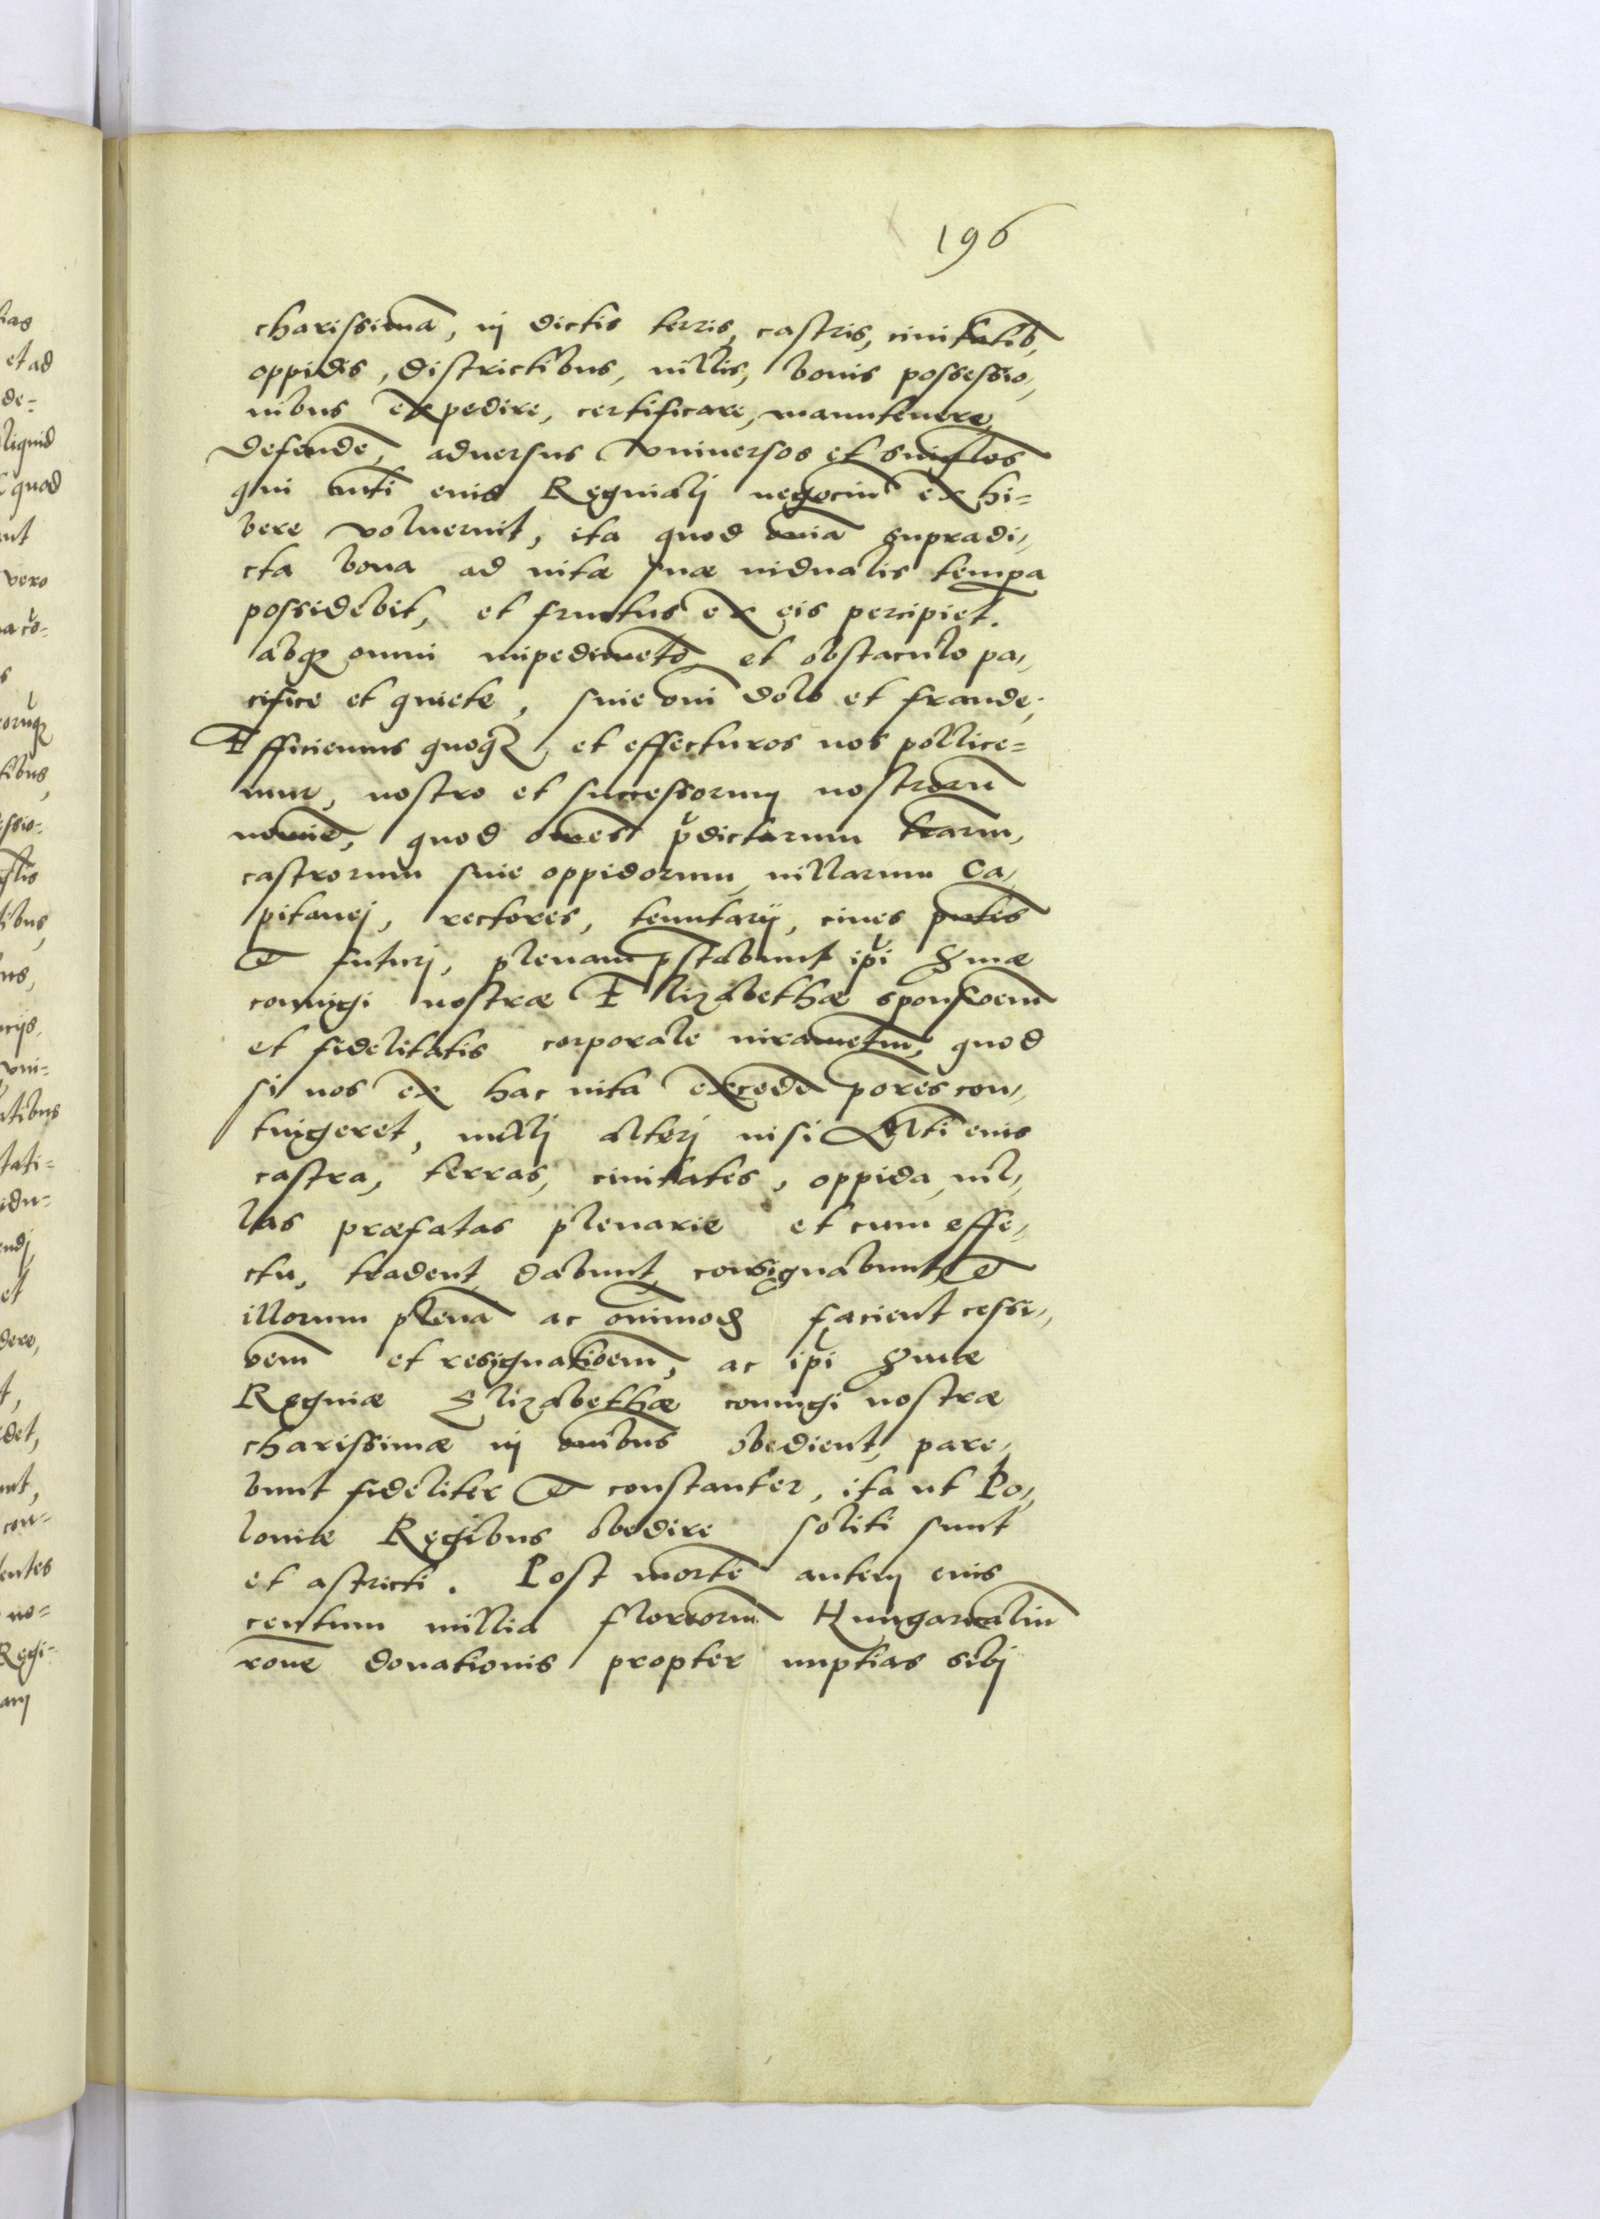 196
charissimā, in dictis terris, castris, ciuitatib,
oppidis, districtibus, uillis, bonis possessio,,
nibus expedire, certificare, manutenere,
defendē, aduersus vniuersos et singlos
qui Mti eius Reginalj negociū exhi=
bere voluerint, ita quod oīa supradi,,
cta bona ad uitæ suæ uidualis tempa
possidebit, et fructus ex eis percipiet.
absq3 omni impedimēto et obstaculo pa,,
cifice et quiete, sine oī dolo et fraude;
Efficiemus quoq3, et effecturos nos pollice=
mur, nostro et successorum nostrorū
nomiē, quod omēs pdictarum trarum,
castrorum siue oppidorum, uillarum Ca,,
pitanej, rectores, tenutarij, ciues pntes
& futurj, plenam pstabunt ipi Sermæ
coniugi nostræ Elizabethæ sponsioem
et fidelitatis corporale iuramētm, quod
si nos ex hac uita excedē pores con,,
tingeret, nullj alterj nisi Mti eius
castra, terras, ciuitates, oppida, uil,,
las præfatas plenarie et cum effe,,
ctu, tradent, dabunt, consignabunt &
illorum plenā ac omimod facient cessi,,
oem et resignatioem, ac ipi Sermæ
Reginæ Elizabethæ coniugi nostræ
charissimæ in oibus obedient, pare,,
bunt fideliter & constanter, ita ut Po,,
loniæ Regibus obedire soliti sunt
et astricti. Post mortē autem eius
centum millia florenorum Hungaricaliū
rone donationis propter nuptias sibj